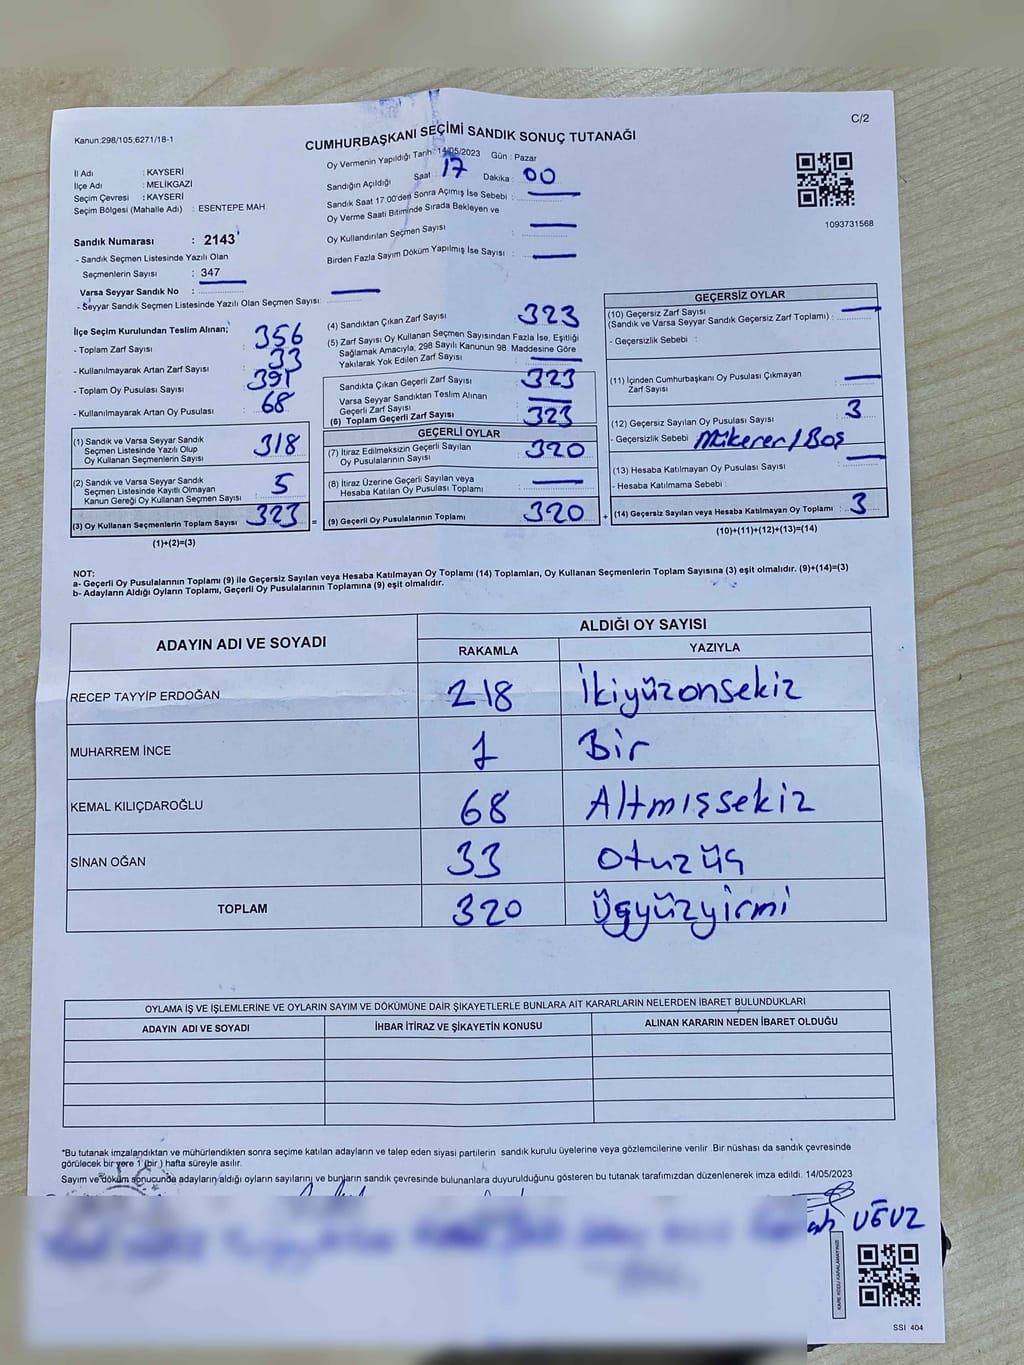 Kanun:298/105,6271/18-1
C/2
CUMHURBAŞKANI SEÇİMİ SANDIK SONUÇ TUTANAĞI
Oy Vermenin Yapıldığı Tarih: 14/05/2023 Gün : Pazar
Sandığın Açıldığı Saat : 17 Dakika : 00
Sandık Saat 17:00'den Sonra Açımış İse Sebebi :
Oy Verme Saati Bitiminde Sırada Bekleyen ve
Oy Kullandırılan Seçmen Sayısı :
Birden Fazla Sayım Döküm Yapılmış İse Sayısı :
1093731568
İl Adı : KAYSERİ
İlçe Adı : MELİKGAZİ
Seçim Çevresi : KAYSERİ
Seçim Bölgesi (Mahalle Adı) : ESENTEPE MAH.
Sandık Numarası : 2143
- Sandık Seçmen Listesinde Yazılı Olan
Seçmenlerin Sayısı : 347
Varsa Seyyar Sandık No :
- Seyyar Sandık Seçmen Listesinde Yazılı Olan Seçmen Sayısı:
İlçe Seçim Kurulundan Teslim Alınan;
- Toplam Zarf Sayısı : 356
- Kullanılmayarak Artan Zarf Sayısı : 33
- Toplam Oy Pusulası Sayısı : 391
- Kullanılmayarak Artan Oy Pusulası : 68
(1) Sandık ve Varsa Seyyar Sandık
Seçmen Listesinde Yazılı Olup
Oy Kullanan Seçmenlerin Sayısı : 318
(2) Sandık ve Varsa Seyyar Sandık
Seçmen Listesinde Kayıtlı Olmayan
Kanun Gereği Oy Kullanan Seçmen Sayısı : 5
(3) Oy Kullanan Seçmenlerin Toplam Sayısı : 323 =
(1)+(2)=(3)
(4) Sandıktan Çıkan Zarf Sayısı : 323
(5) Zarf Sayısı Oy Kullanan Seçmen Sayısından Fazla İse, Eşitliği
Sağlamak Amacıyla, 298 Sayılı Kanunun 98. Maddesine Göre
Yakılarak Yok Edilen Zarf Sayısı :
Sandıkta Çıkan Geçerli Zarf Sayısı : 323
Varsa Seyyar Sandıktan Teslim Alınan
Geçerli Zarf Sayısı :
(6) Toplam Geçerli Zarf Sayısı : 323
GEÇERLİ OYLAR
(7) İtiraz Edilmeksizin Geçerli Sayılan
Oy Pusulalarının Sayısı : 320
(8) İtiraz Üzerine Geçerli Sayılan veya
Hesaba Katılan Oy Pusulası Toplamı :
(9) Geçerli Oy Pusulalarının Toplamı : 320 +
GEÇERSİZ OYLAR
(10) Geçersiz Zarf Sayısı
(Sandık ve Varsa Seyyar Sandık Geçersiz Zarf Toplamı) :
- Geçersizlik Sebebi :
(11) İçinden Cumhurbaşkanı Oy Pusulası Çıkmayan
Zarf Sayısı :
(12) Geçersiz Sayılan Oy Pusulası Sayısı : 3
- Geçersizlik Sebebi : Mükerer/Boş
(13) Hesaba Katılmayan Oy Pusulası Sayısı :
- Hesaba Katılmama Sebebi :
(14) Geçersiz Sayılan veya Hesaba Katılmayan Oy Toplamı : 3
(10)+(11)+(12)+(13)=(14)
NOT:
a- Geçerli Oy Pusulalarının Toplamı (9) ile Geçersiz Sayılan veya Hesaba Katılmayan Oy Toplamı (14) Toplamları, Oy Kullanan Seçmenlerin Toplam Sayısına (3) eşit olmalıdır. (9)+(14)=(3)
b- Adayların Aldığı Oyların Toplamı, Geçerli Oy Pusulalarının Toplamına (9) eşit olmalıdır.
ADAYIN ADI VE SOYADI
ALDIĞI OY SAYISI
RAKAMLA YAZIYLA
RECEP TAYYİP ERDOĞAN 218 İkiyüzonsekiz
MUHARREM İNCE 1 Bir
KEMAL KILIÇDAROĞLU 68 Altmışsekiz
SİNAN OĞAN 33 Otuzüç
TOPLAM 320 Üçyüzyirmi
OYLAMA İŞ VE İŞLEMLERİNE VE OYLARIN SAYIM VE DÖKÜMÜNE DAİR ŞİKAYETLERLE BUNLARA AİT KARARLARIN NELERDEN İBARET BULUNDUKLARI
ADAYIN ADI VE SOYADI İHBAR İTİRAZ VE ŞİKAYETİN KONUSU ALINAN KARARIN NEDEN İBARET OLDUĞU
*Bu tutanak imzalandıktan ve mühürlendikten sonra seçime katılan adayların ve talep eden siyasi partilerin sandık kurulu üyelerine veya gözlemcilerine verilir. Bir nüshası da sandık çevresinde
görülecek bir yere 1 (bir) hafta süreyle asılır.
Sayım ve döküm sonucunda adayların aldığı oyların sayılarını ve bunların sandık çevresinde bulunanlara duyurulduğunu gösteren bu tutanak tarafımızdan düzenlenerek imza edildi. 14/05/2023
UĞUZ
KARE KODU KARALAMAYINIZ!
SSI 404